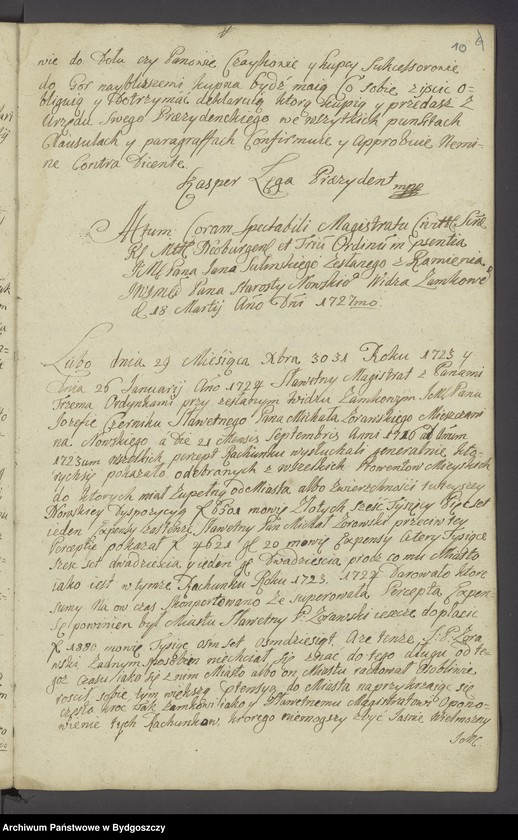 10
wie do Dołu czy Panowie Czaykowie y kupcy Sukcessorowie
do Gor naybliższemi kupna bydź maią Co sobie ziścić o-
bliguią y dotrzymać deklaruią ktorą kupią y przedasz Z
Urzędu Swego Præzydenckiego we wszytkich punktach
Clausulach y paragraffach Confirmuie y Approbuie Nemi-
ne Contra Dicente
Kasper Lega Præzydent mpp
Actum Coram Spectabili Magistratu Civittis
Rs Mttis Neoburgen et Triu Ordinu in Psentia
JKMs Pana Jana Sulmskiego Zesłanego z Ramienia
Pana Starosty Nowskiego Widza Zamkowe
d 18 Martij Año Dñi 1727mo
Lubo dnia 29 Miesiąca Xbra 3031 Roku 1723 y
Dnia 26 Januarij Ano 1724 Sławetny Magistrat z Panami
Trzema Ordynkami przy zesłanym Widzu Zamkowym JM. Panu
Jozefie Czernik Sławetnego Pana Michała Zorawskiego Mieszczani
na Nowskiego a die 21 Mensis Septembris Anni 1716 ad Annum
1723um wszelkich percept Rachunku wysłuchali generalnie kto-
rych się pokazało odebranych z wszelkich Prowentow Mieyskich
do ktorych miał Zupełną od Miasta albo Zwierzchności tuteyszey
Nowskiey Dyspozycyą 6501 mowię Złotych Sześć Tysięcy Pięćset
ieden Expensy zaś tenże Sławetny Pan Michał Zorawski przeciw tey
Percepcie pokazał 4621 gl 20 mowię Expensy Cztery Tysiące
Szesc Set dwadziescia y ieden gl Dwadziescia, procz co mu Miasto
iako iest w tymze Rachunku Roku 1723. 1724 Darowało ktore
Sumy Na on czas Skonportowano Ze superowała Percepta Expen-
Sę powinien był Miastu Sławetny P. Zorawski ieszcze dopłacic
1880 mowię Tysiąc osm set osmdziesiąt, Ale tenże S. P. Zora
wski Zadnym sposobem niechciał się znać do tego długu od te-
goż Czasu iako się z nim Miasto albo on Miastu rachował osobliwie
roscił sobie tym większą Ptensyą do Miasta naprzykrzaiąc się
częstą kroc tak Zamkowi iako y Sławetnemu Magistratowi o pono-
wienie tych Rachunkow, ktorego niemogszy zbyć Jasnie Wielmozny
JM.
Archiwum Państwowe w Bydgoszczy